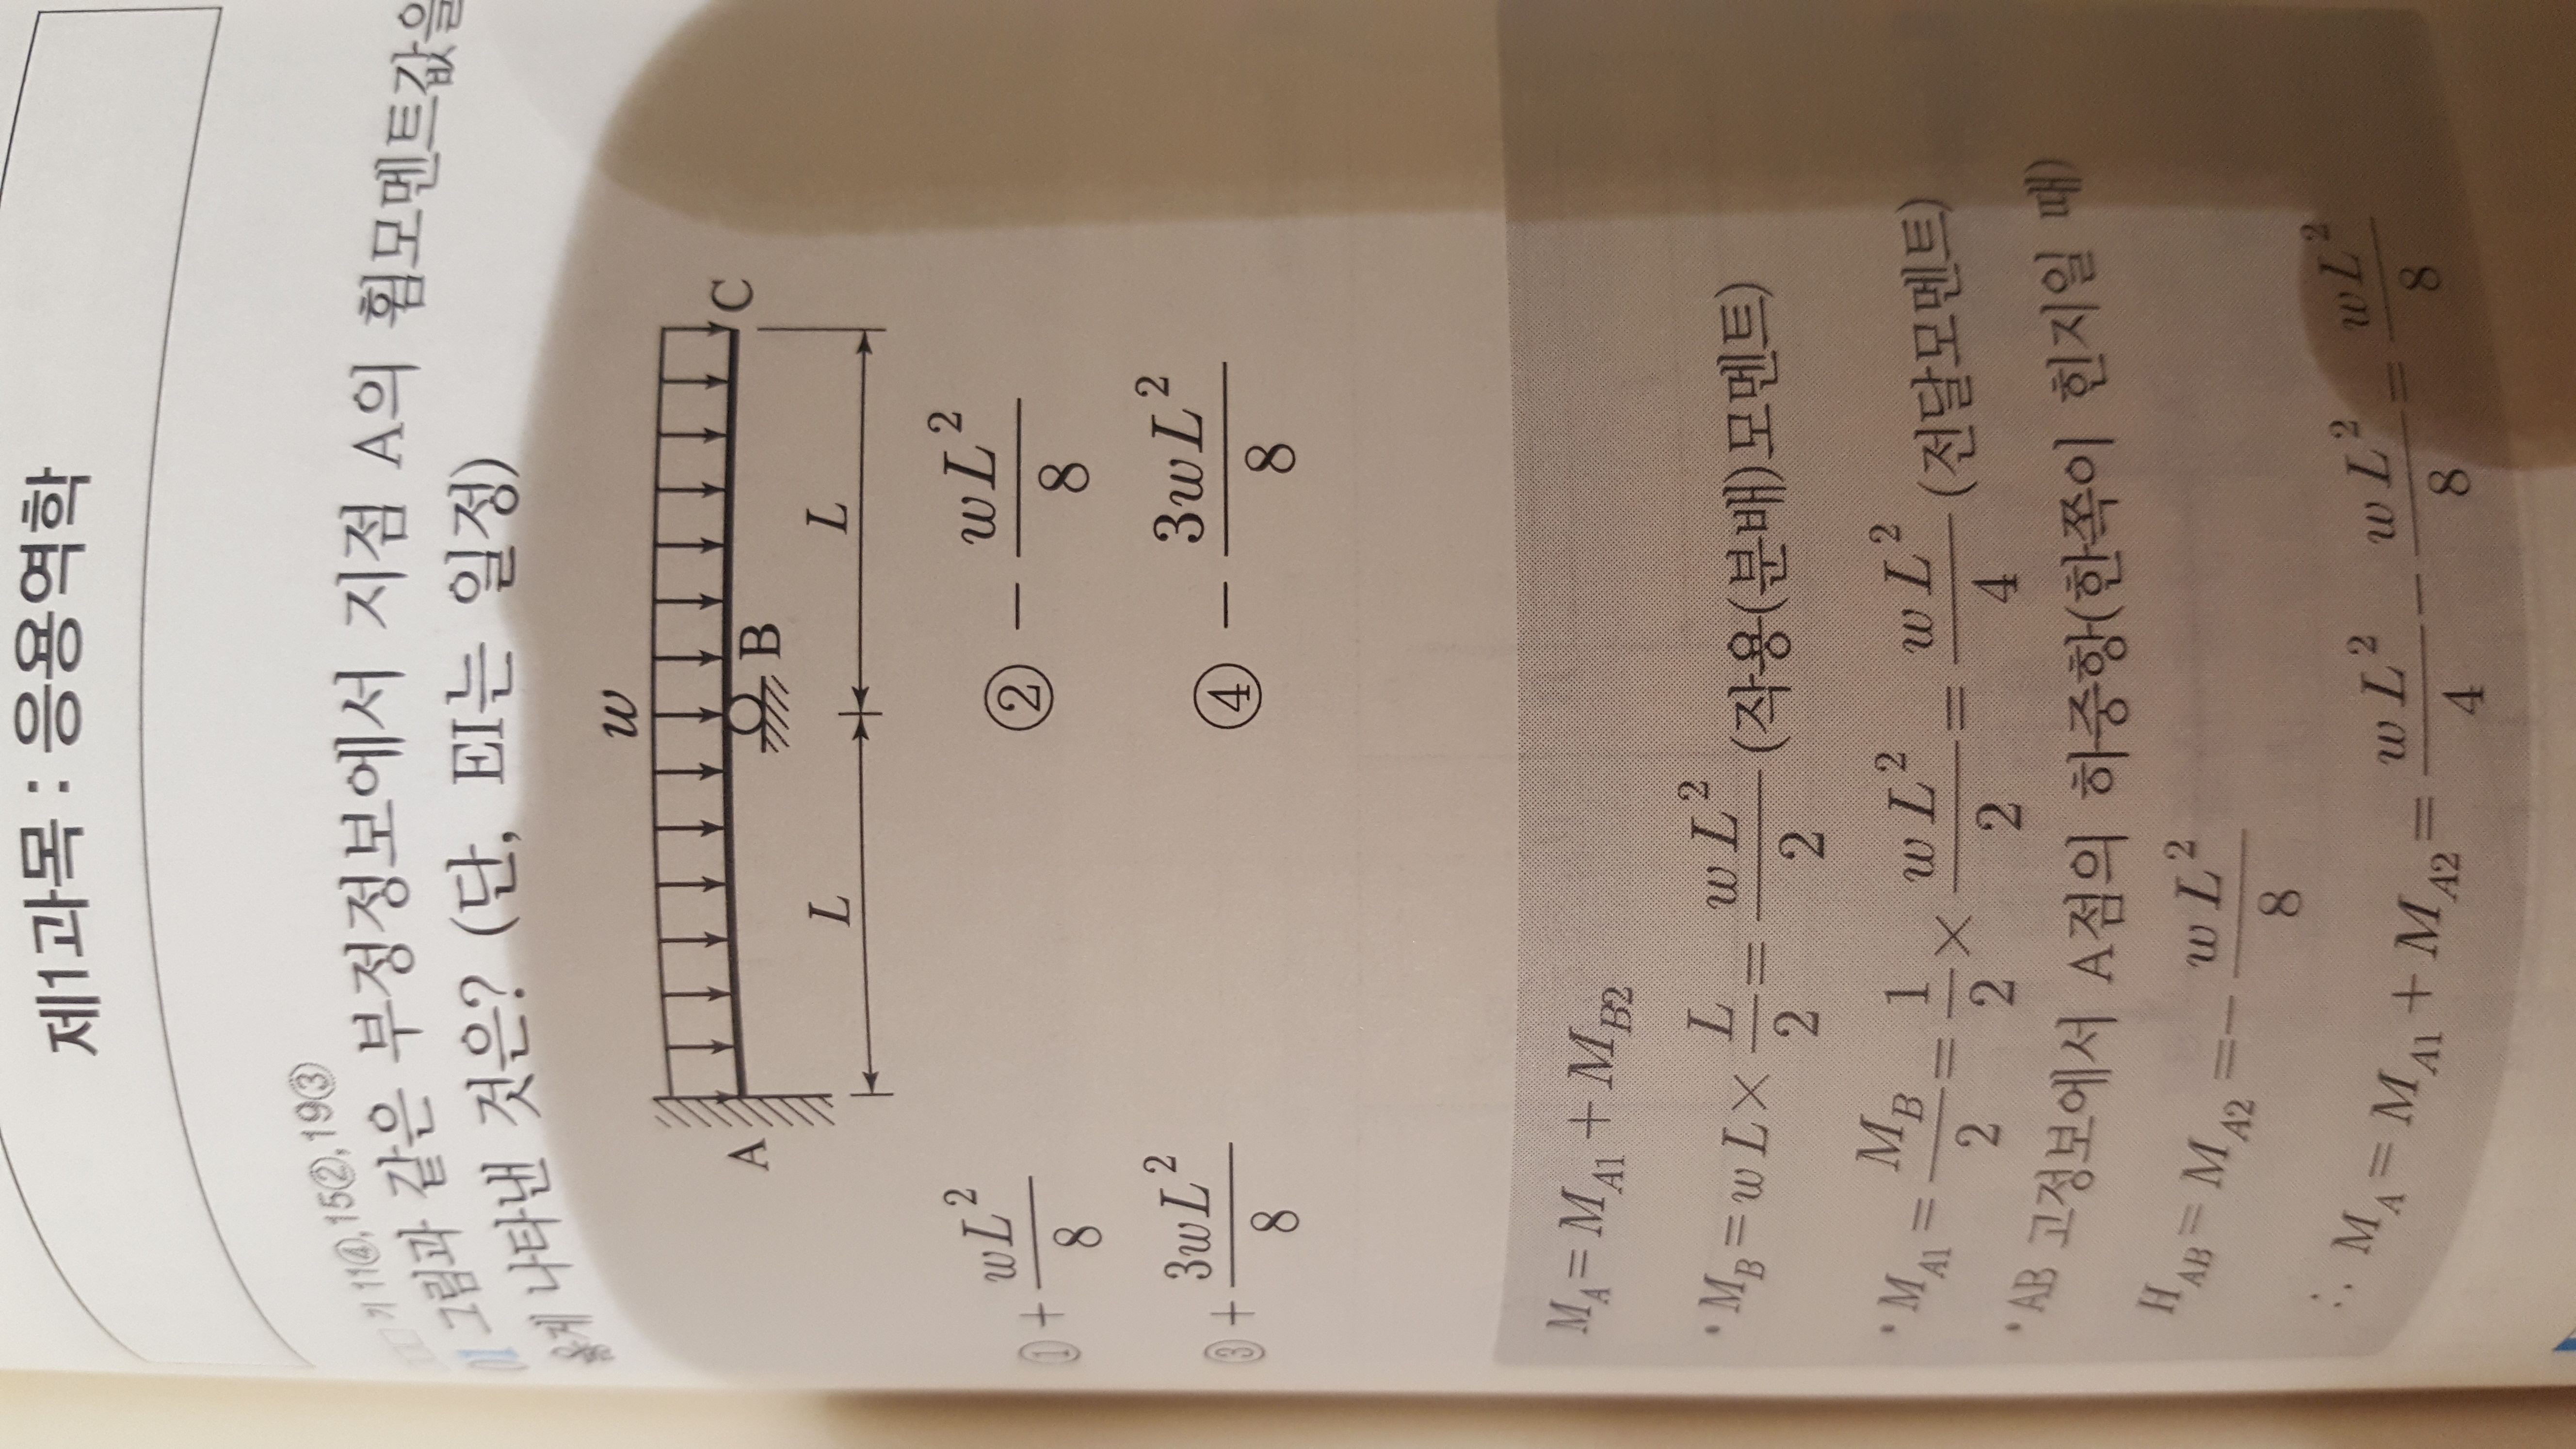 제1과목 : 응용역학
기 11④, 15②, 19③
01 그림과 같은 부정정보에서 지점 A의 휨모멘트값을
옳게 나타낸 것은? (단, EI는 일정)
w
A B C
L L
① + wL²/8 ② − wL²/8
③ + 3wL²/8 ④ − 3wL²/8
M_A = M_A1 + M_B2
• M_B = wL × L/2 = wL²/2 (작용(분배)모멘트)
• M_A1 = M_B/2 = 1/2 × wL²/2 = wL²/4 (전달모멘트)
• AB 고정보에서 A점의 하중항(한쪽이 힌지일 때)
H_AB = M_A2 = − wL²/8
∴ M_A = M_A1 + M_A2 = wL²/4 − wL²/8 = wL²/8